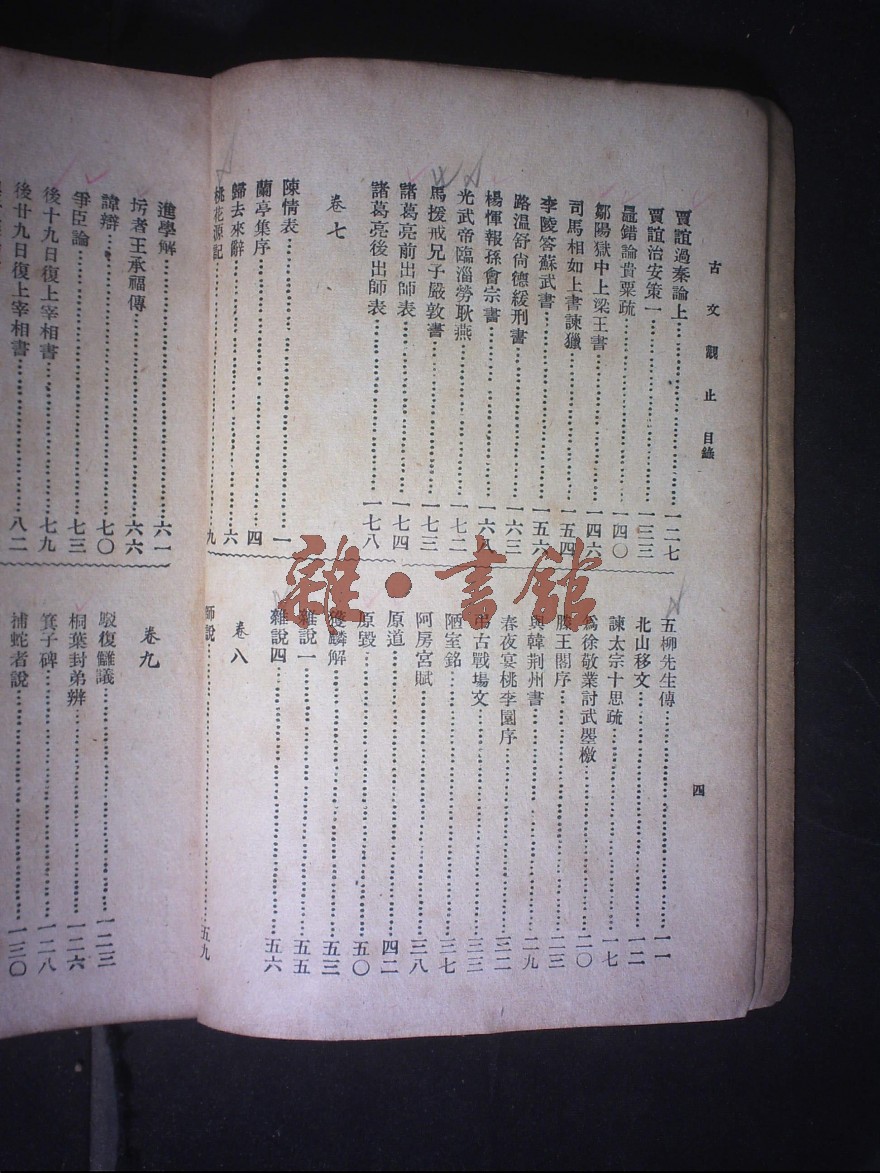 古文觀止 目錄
四
賈誼過秦論上一二七
賈誼治安策一一三三
鼂錯論貴粟疏一四〇
鄒陽獄中上梁王書一四六
司馬相如上書諫獵一五四
李陵答蘇武書一五六
路溫舒尙德緩刑書一六三
楊惲報孫會宗書一六八
光武帝臨淄勞耿弇一七二
馬援戒兄子嚴敦書一七三
諸葛亮前出師表一七四
諸葛亮後出師表一七八
卷七
陳情表一
蘭亭集序四
歸去來辭六
桃花源記九
五柳先生傳一一
北山移文一二
諫太宗十思疏一七
爲徐敬業討武曌檄二〇
滕王閣序二三
與韓荆州書二九
春夜宴桃李園序三二
弔古戰場文三三
陋室銘三七
阿房宮賦三八
原道四二
原毀五〇
獲麟解五三
雜說一五五
雜說四五六
卷八
師說五九
進學解六一
圬者王承福傳六六
諱辯七〇
爭臣論七三
後十九日復上宰相書七九
後廿九日復上宰相書八二
卷九
駁復讎議一二三
桐葉封弟辨一二六
箕子碑一二八
捕蛇者說一三〇
雜·書館